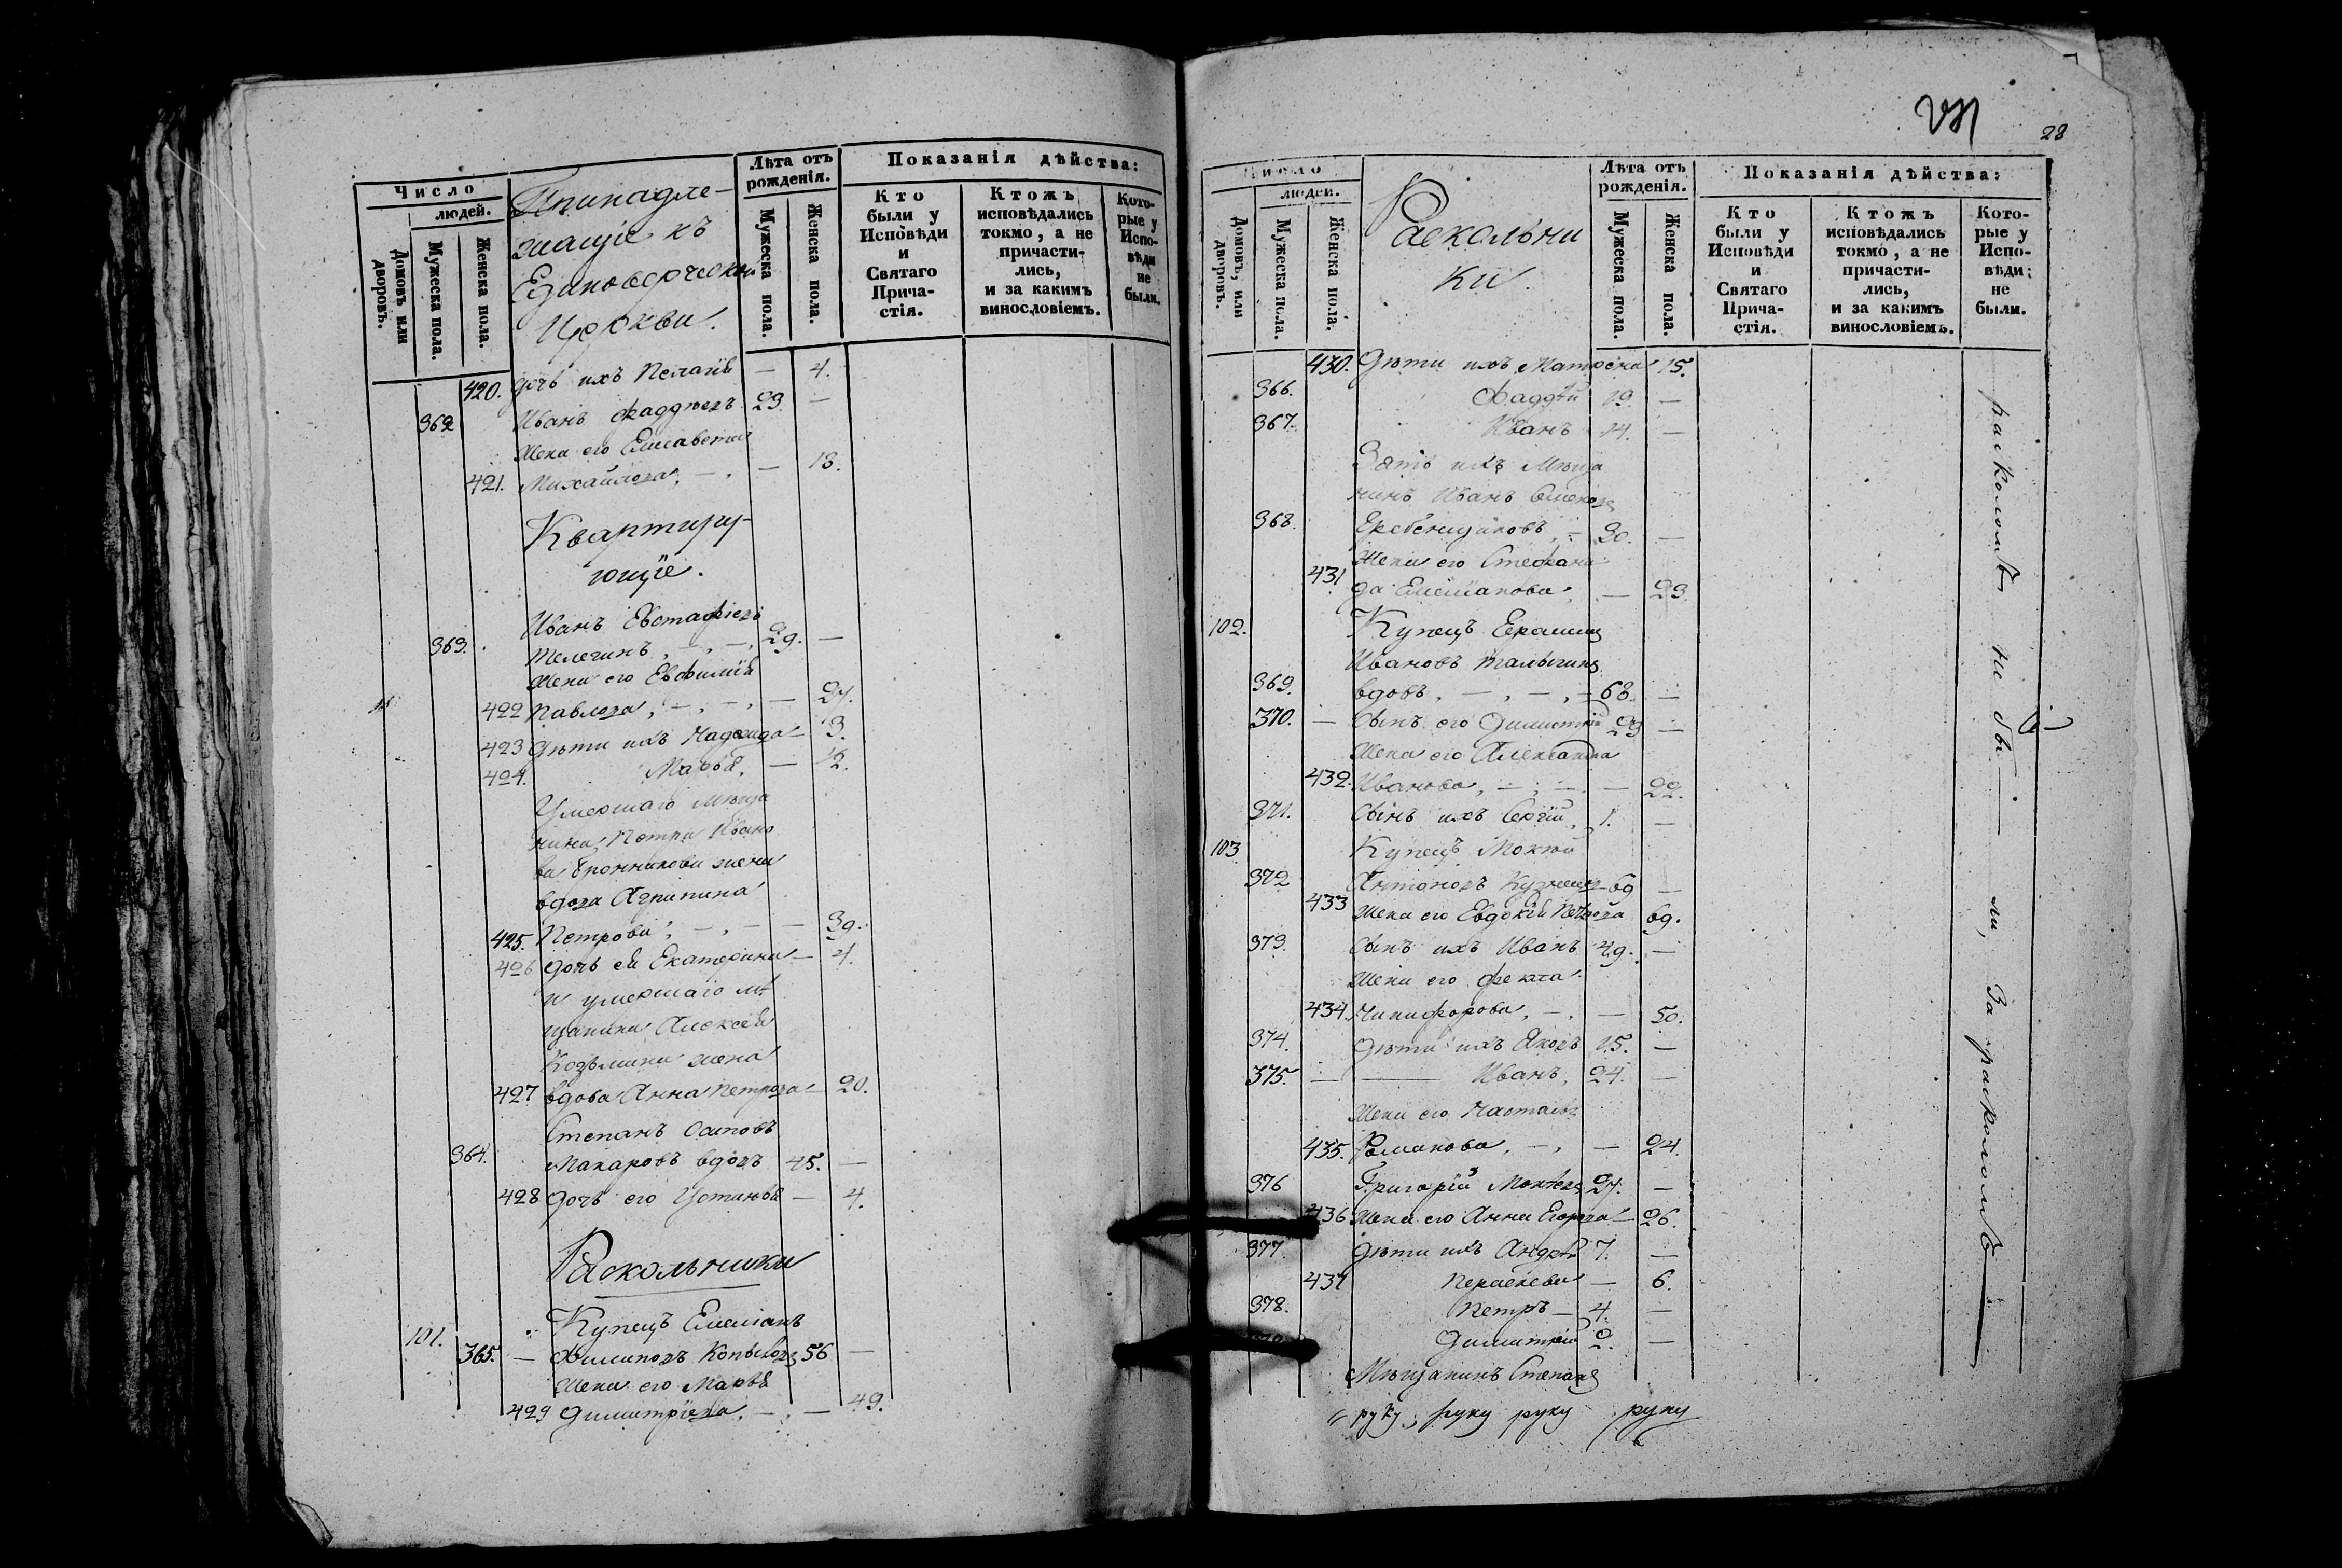 Число
людей.
Домовъ или дворовъ.
Мужеска пола.
Женска пола.
Принадле-
жащіе къ
Единоверческой
Церкви.
Лѣта отъ рожденія.
Мужеска пола.
Женска пола.
Показанія дѣйства:
Кто были у Исповѣди и Святаго Прича- стія.
Ктожъ исповѣдались токмо, а не причасти- лись, и за какимъ винословіемъ.
Кото- рые у Испо- вѣди не были.
420. Дочь ихъ Пелагія — 4.
362 Иванъ Фаддѣевъ 23. —
Жена его Елисавета
421. Михайлова, — . — 18.
Квартиру-
ющіе.
Иванъ Евстафіевъ
363. Телегинъ, — , — , 29. —
Жена его Евфимія
422 Павлова, — , — , — 27.
423 Дѣти ихъ Надежда — 3.
424. Марья, — 1/2.
Умершаго мѣща
нина Петра Ивано
ва жена
вдова Агрипина
425. Петрова, — , — — 39.
426 Дочь ея Екатерина — 4.
и умершаго мѣ
щанина Алексѣя
Козьмина жена
427 вдова Анна Петрова — 20.
Степанъ Осиповъ
364. Макаровъ вдовъ 45. —
428 Дочь его Устинья — 4.
Раскольники
101. Купецъ Емеліанъ
365. — Филиповъ Копыловъ 56 —
Жена его Марья
429 Димитріева, — , — 49.
28
Число
людей.
Домовъ, или дворовъ.
Мужеска пола.
Женска пола.
Раскольни
ки.
Лѣта отъ рожденія.
Мужеска пола.
Женска пола.
Показанія дѣйства:
Кто были у Исповѣди и Святаго Прича- стія.
Ктожъ исповѣдались токмо, а не причасти- лись, и за какимъ винословіемъ.
Кото- рые у Испо- вѣди не были.
430. Дѣти ихъ Матрена 15.
366. Фаддѣй 19. —
367. Иванъ 14. —
Зять ихъ Мѣща
нинъ Иванъ
368. Гребенщиковъ, — 30. —
Жена его Стефани
431 да Емеліанова, — 23.
102. Купецъ
Ивановъ
369. вдовъ, — , — , — 68. —
370. — Сынъ его Димитрій 23 —
Жена его Александра
432. Иванова, — , — — 22.
371. Сынъ ихъ Сергій, 1. —
103. Купецъ Мокій
372 Антоновъ 69 —
433 Жена его Евдокія Петрова 69.
373. Сынъ ихъ Иванъ 49. —
Жена его Фекла
434. Никифорова, — , — 50.
374. Дѣти ихъ Яковъ 15. —
375. — — Иванъ, 24. —
Жена его Настасья
435. Романова, — , — 24.
376 Григорій Мокіевъ 27. —
436 Жена его Анна Егорова — 26.
377. Дѣти ихъ Андрей 7. —
437 Параскева — 6.
378. Петръ — 4. —
Димитрій 2. —
Мѣщанинъ Степанъ
руку, руку руку руку
расколомъ не бы — ли, За расколомъ